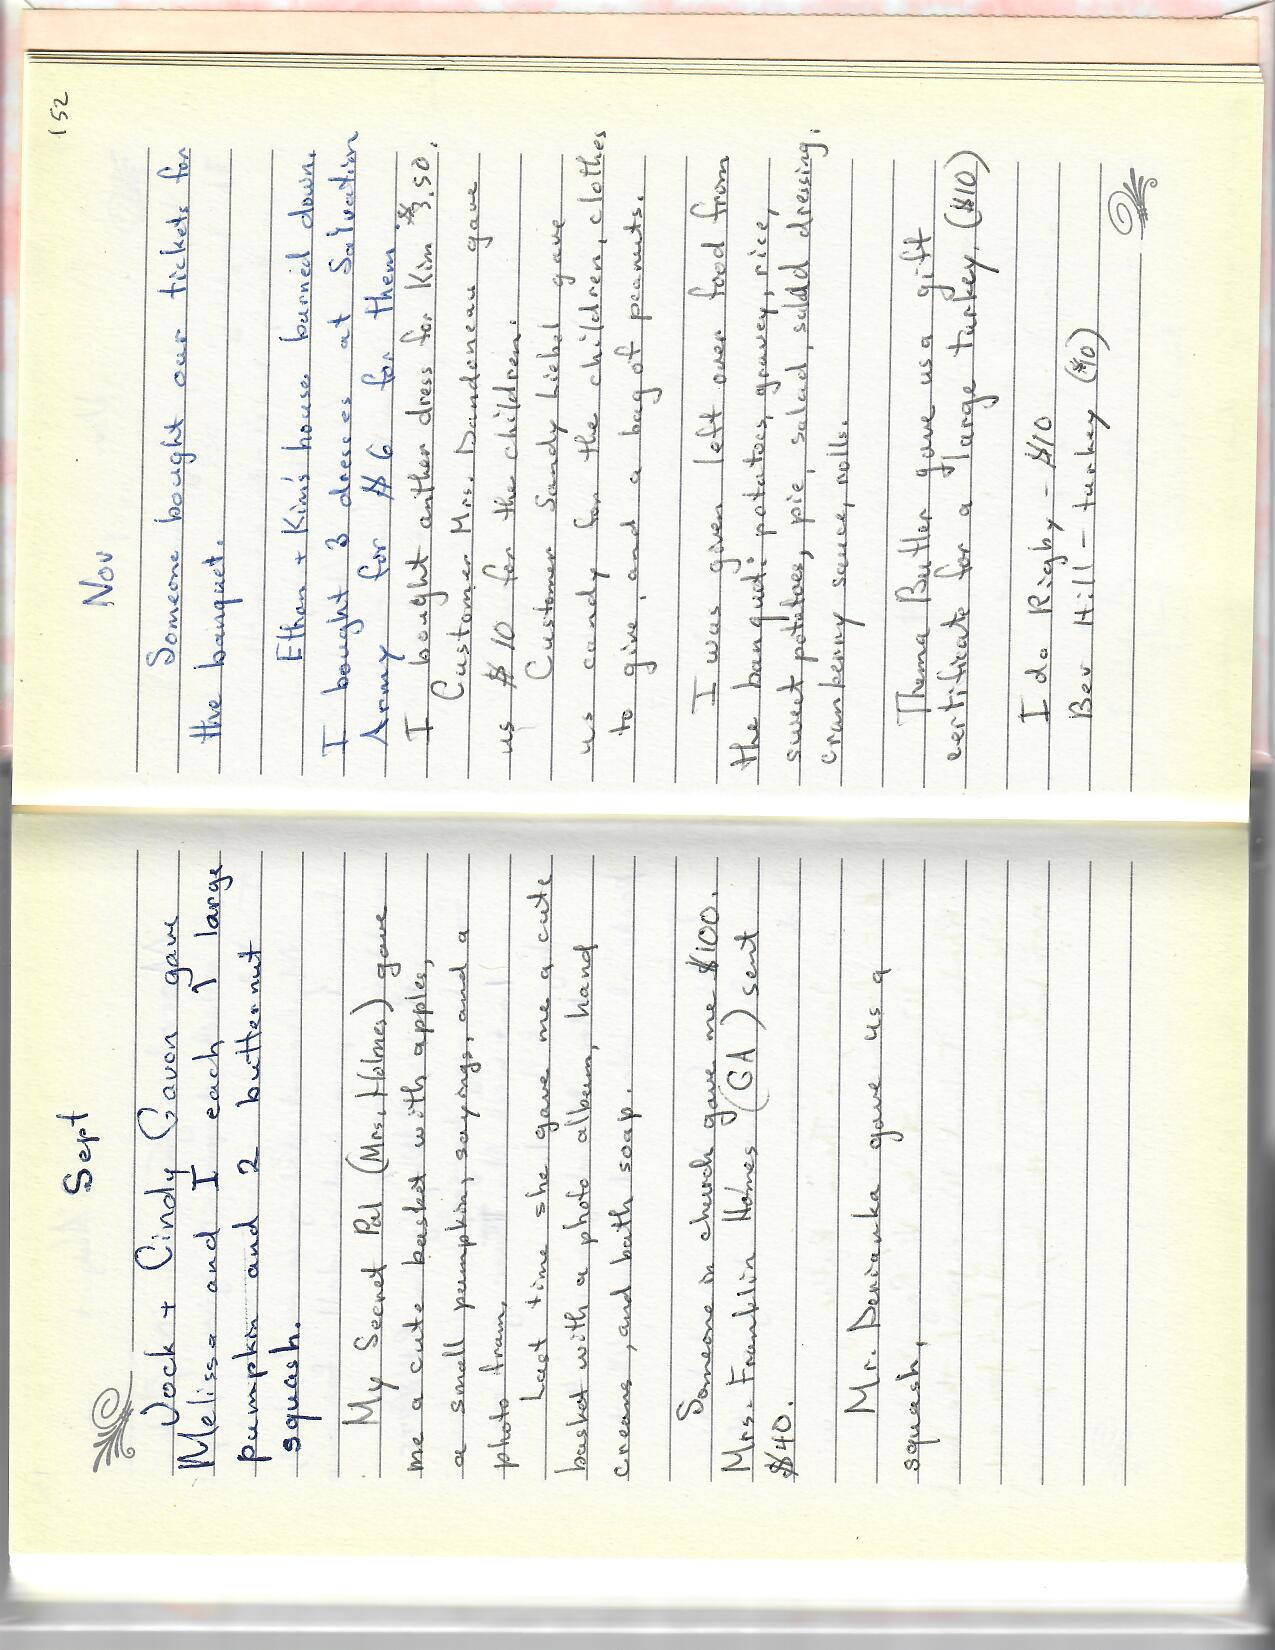 Sept
Jock + Cindy Gavon gave
Melissa and I each 1 large
pumpkin and 2 butternut
squash.
My Secret Pal (Mrs. Holmes) gave
me a cute basket with apples,
a small pumpkin, sayings, and a
photo fram.
Last time she gave me a cute
basket with a photo album, hand
creams, and bath soap.
Someone in church gave me $100.
Mrs. Franklin Holmes (GA) sent
$40.
Mr. Derianka gave us a
squash.
152
Nov
Someone bought our tickets for
the banquet.
Ethan + Kim's house burned down.
I bought 3 dresses at Salvation
Army for $6 for them.
I bought anther dress for Kim $3.50.
Customer Mrs. Dandoneau gave
us $10 for the children.
Customer Sandy Liebel gave
us candy for the children, clothes
to give, and a bag of peanuts.
I was given left over food from
the banquet: potatoes, gravey, rice,
sweet potatoes, pie, salad, salad dressing,
cranberry sauce, rolls.
Thema Butler gave us a gift
certificate for a large turkey. ($10)
Ida Rigby - $10
Bev Hill - turkey ($10)